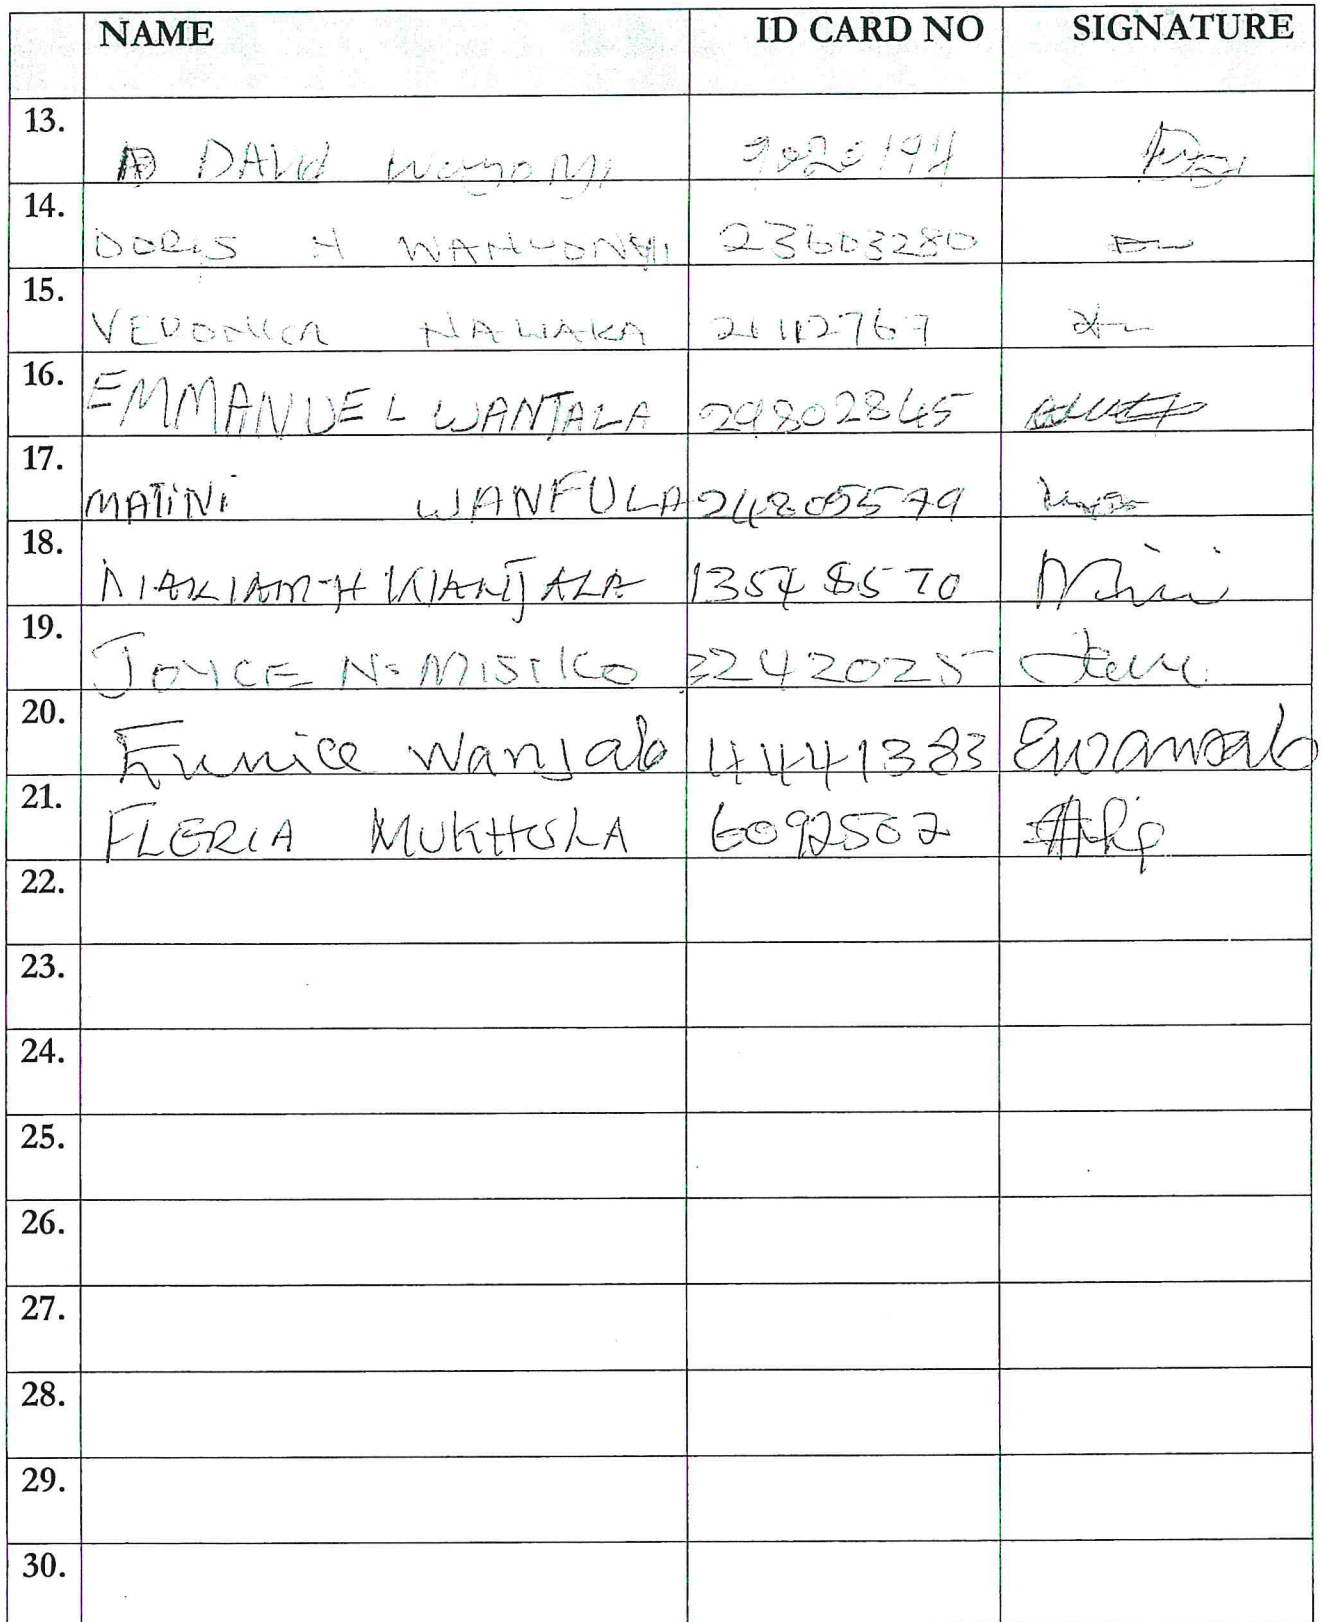 NAME ID CARD NO SIGNATURE
13. DAVID 9020194
14. DORIS N WANYONYI 23603280
15. VERONICA NALIAKA 21112767
16. EMMANUEL WANJALA 29802845
17. MATINI WANFULA 24805579
18. MARIAM H WANJALA 13548570
19. JOYCE N. MISIKO 2242025
20. Eunice Wanjala 4441383 Ewanjala
21. FLERIA 6092502
22.
23.
24.
25.
26.
27.
28.
29.
30.